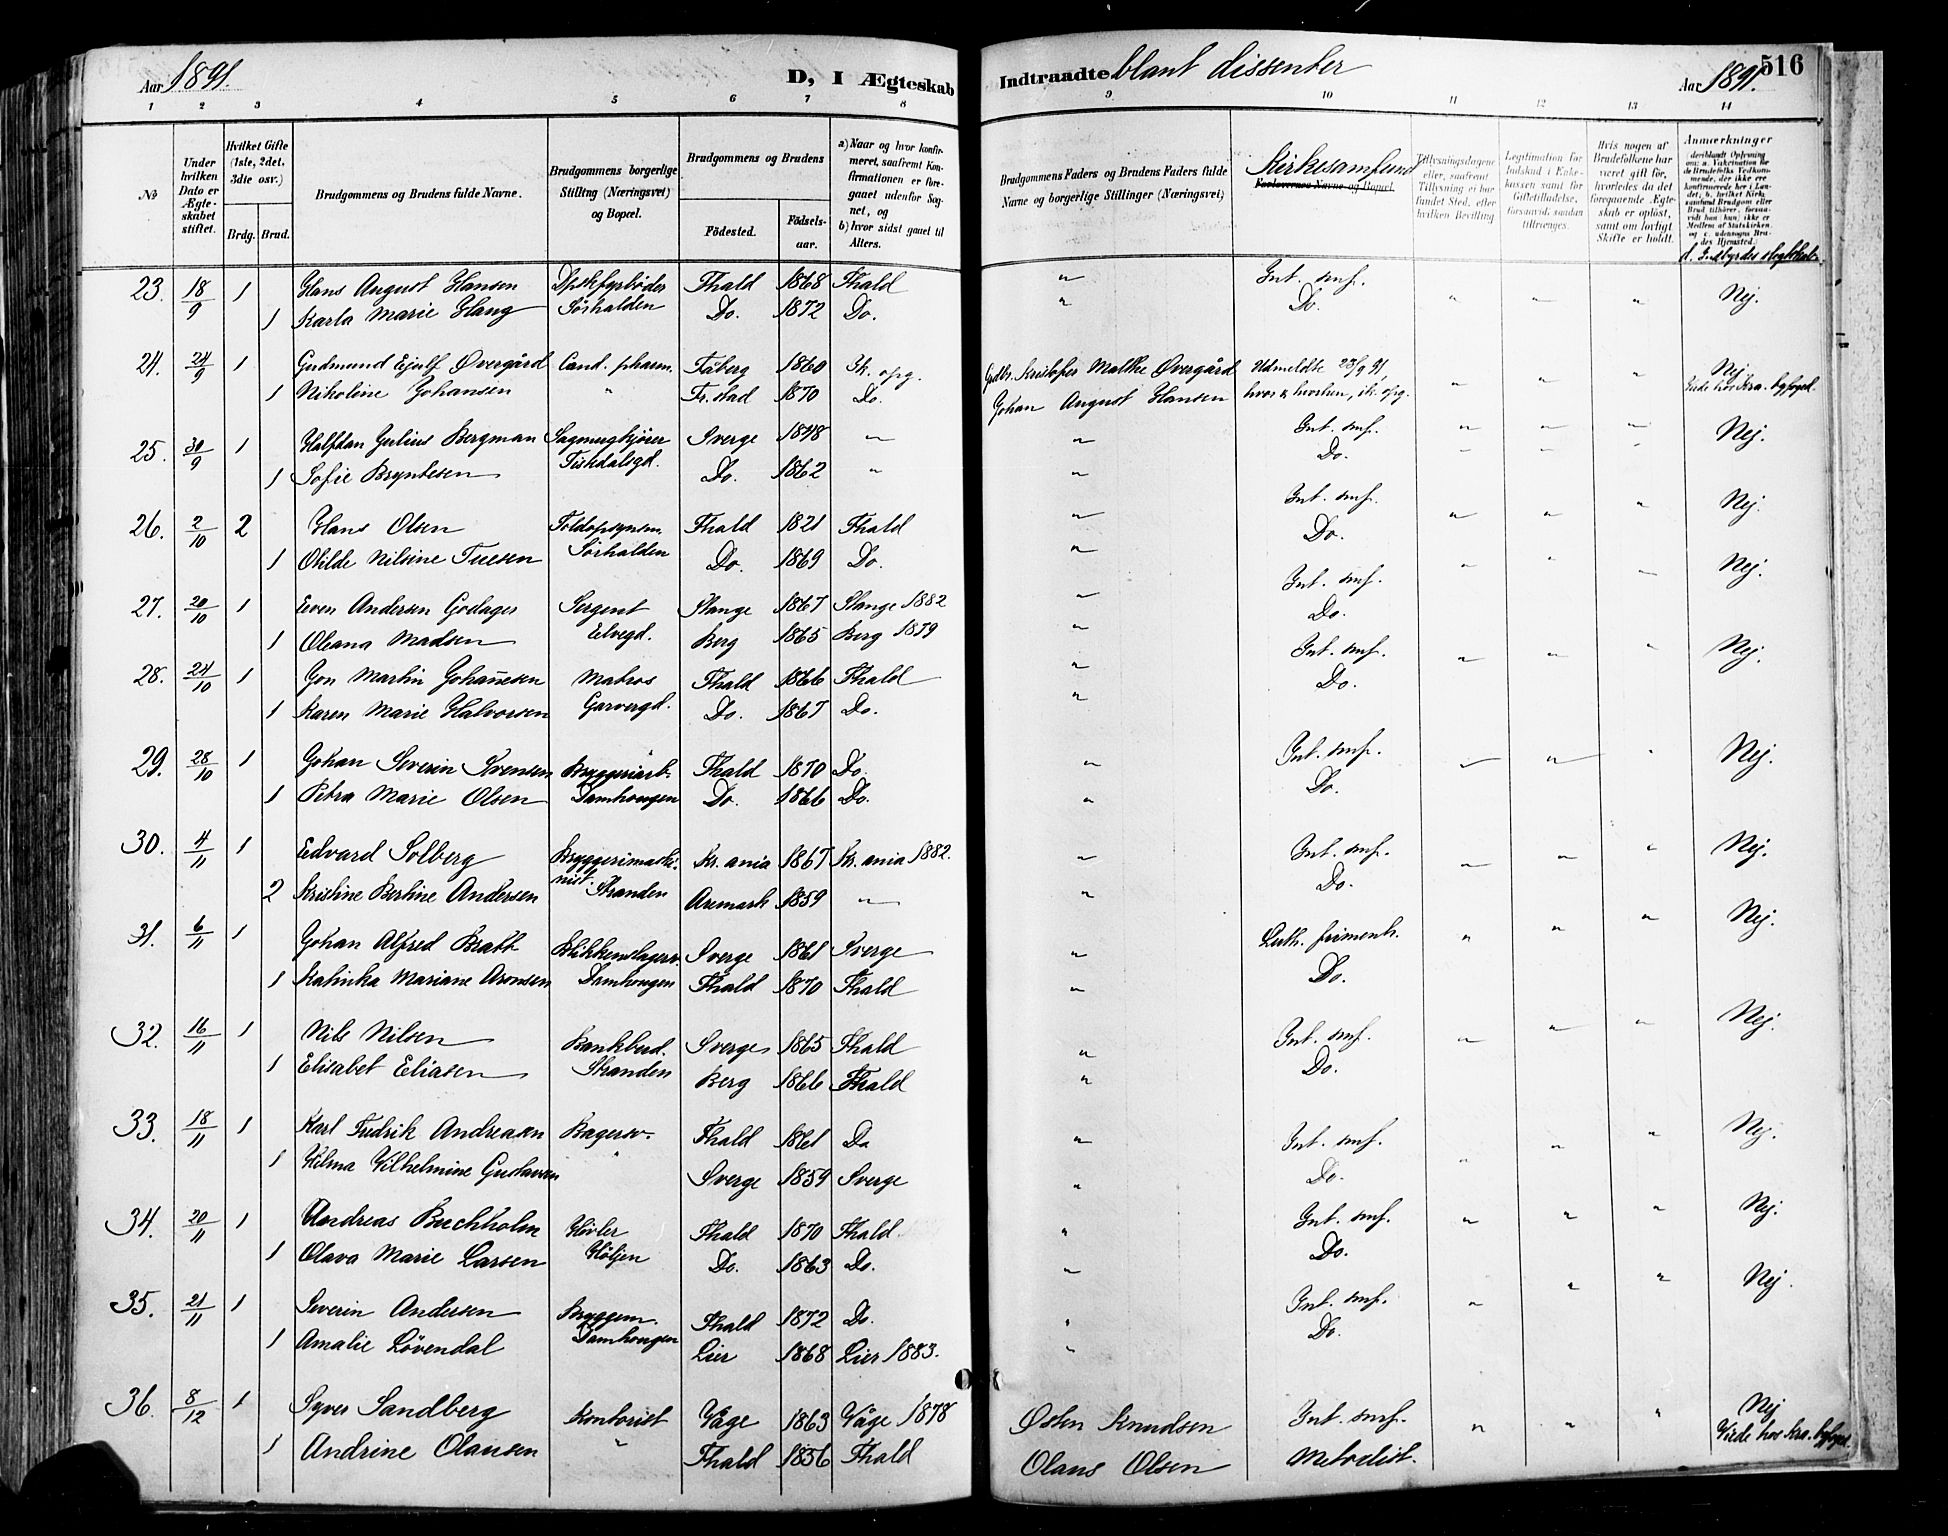 Aar 1891.
D, I Ægteskab
Indtraadte blant dissenter
Aar 1891.
516
1 2 3 4 5 6 7 8 9 10 11 12 13 14
No
Under hvilken Dato er Ægteskabet stiftet.
Hvilket Gifte (1ste, 2det, 3die osv.)
Brdg. Brud.
Brudgommens og Brudens fulde Navne.
Brudgommens borgerlige Stilling (Næringsvei) og Bopæl.
Brudgommens og Brudens
Födested. Födselsaar.
a) Naar og hvor konfirmeret, saafremt Konfirmationen er foregaaet udenfor Sognet, og
b) hvor sidst gaaet til Alters.
Brudgommens Faders og Brudens Faders fulde Navne og borgerlige Stillinger (Næringsvei)
Kirkesamfund
Forlovernes Navne og Bopæl.
Tillysningsdagene eller, saafremt Tillysning ei har fundet Sted, efter hvilken Bevilling
Legitimation for Indskud i Enkekassen samt for Giftetilladelse, forsaavidt saadan tiltrænges.
Hvis nogen af Brudefolkene har været gift før, hvorledes da det foregaaende Ægteskab er opløst, samt om lovligt Skifte er holdt.
Anmærkninger
23. 18/9 1 Hans August Hansen Dpskfyrbøder Fhald 1868 Fhald " Int. smf. " " " Nej.
1 Karla Marie Haug Sørhalden Do. 1872 Do. " Do.
24. 24/9 1 Gudmund Ejulf Øvergård Cand. pharm. Fåberg 1860 Ik. opg. Grdbr. Kristofer Malthe Øvergård Udmeldte 23/9 91, " " " Nej.
1 Nikoline Johansen " Fr.stad 1870 Do. Johan August Hansen hvor & hvorhen, ik. opg. Viede hos Kra. byfoged.
25. 30/9 1 Halfdan Julius Bergman Sagmugkjører Sverge 1848 " " Int. smf. " " " Nej.
1 Sofie Bryntesen Tiskdalsgd. Do. 1862 " " Do. " " "
26. 2/10 2 Hans Olsen Toldopsynsm. Fhald 1821 Fhald " Int. smf. " " " Nej.
1 Otilde Nilsine Tuesen Sørhalden Do. 1869 Do. " Do.
27. 20/10 1 Even Andersen Godager Sergent Stange 1867 Stange 1882 " Int. smf. " " " Nej.
1 Oleana Madsen Elvegd. Berg 1865 Berg 1879 " Do.
28. 24/10 1 Jon Martin Johanesen Matros Fhald 1866 Fhald " Int. smf. " " " Nej.
1 Karen Marie Halvorsen Garvergd. Do. 1867 Do. " Do.
29. 28/10 1 Johan Severin Svensen Bryggeriarb. Fhald 1870 Do. " Int. smf. " " " Nej.
1 Petra Marie Olsen Damhougen Do. 1866 Do. " Do.
30. 4/11 1 Edvard Solberg Bryggerimaskinist. Kr.ania 1867 Kr.ania 1882. " Int. smf. " " " Nej.
2 Kristine Bertine Andersen Stranden Aremark 1859 " " Do.
31. 6/11 1 Johan Alfred Bratt Blikkenslagersv. Sverge 1861 Sverge " Luth. frimenh. " " " Nej.
1 Kalinka Mariane Aronsen Damhougen Fhald 1870 Fhald " Do.
32. 16/11 1 Nils Nilsen Bankbud. Sverge 1865 Fhald " Int. smf. " " " Nej.
1 Elisabet Eliasen Stranden Berg 1866 Fhald " Do.
33. 18/11 1 Karl Fredrik Andreasen Bagersv. Fhald 1861 Do " Int. smf. " " " Nej.
1 Hilma Vilhelmine Gustavsen " Sverge 1859 Sverge " Do.
34. 20/11 1 Andreas Buchholm Høvler Fhald 1870 Fhald. " Int. smf. " " " Nej.
1 Olava Marie Larsen Høljen Do. 1863 Do. " Do.
35. 21/11 1 Severin Andersen Bryggem. Fhald 1872 Do. " Int. smf. " " " Nej.
1 Amalie Lövendal Damhougen Lier 1868 Lier 1883. " Do.
36. 8/12 1 Syver Sandberg Kontorist Våge 1863 Våge 1878 Østen Knudsen Int. smf. " " " Nej
1 Andrine Olausen " Fhald 1856 Fhald Olaus Olsen Metodist. Viede hos Kra. byfoged.